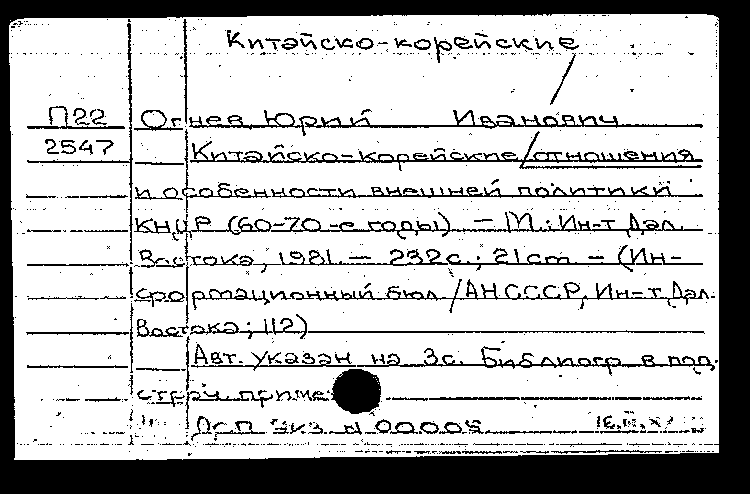 Китайско-корейские
П22 Огнев, Юрий Иванович
2547 Китайско-корейские/отношения
и особенности внешней политики
КНДР (60-70-е годы). - М.: Ин-т Дал.
Востока, 1981. - 232с.; 21cm - (Ин-
формационный бюл./АН СССР, Ин-т Дал.
Востока; 112)
Авт. указан на 3с. Библиогр. в под-
строч. приме
ДСП Экз. N 00005